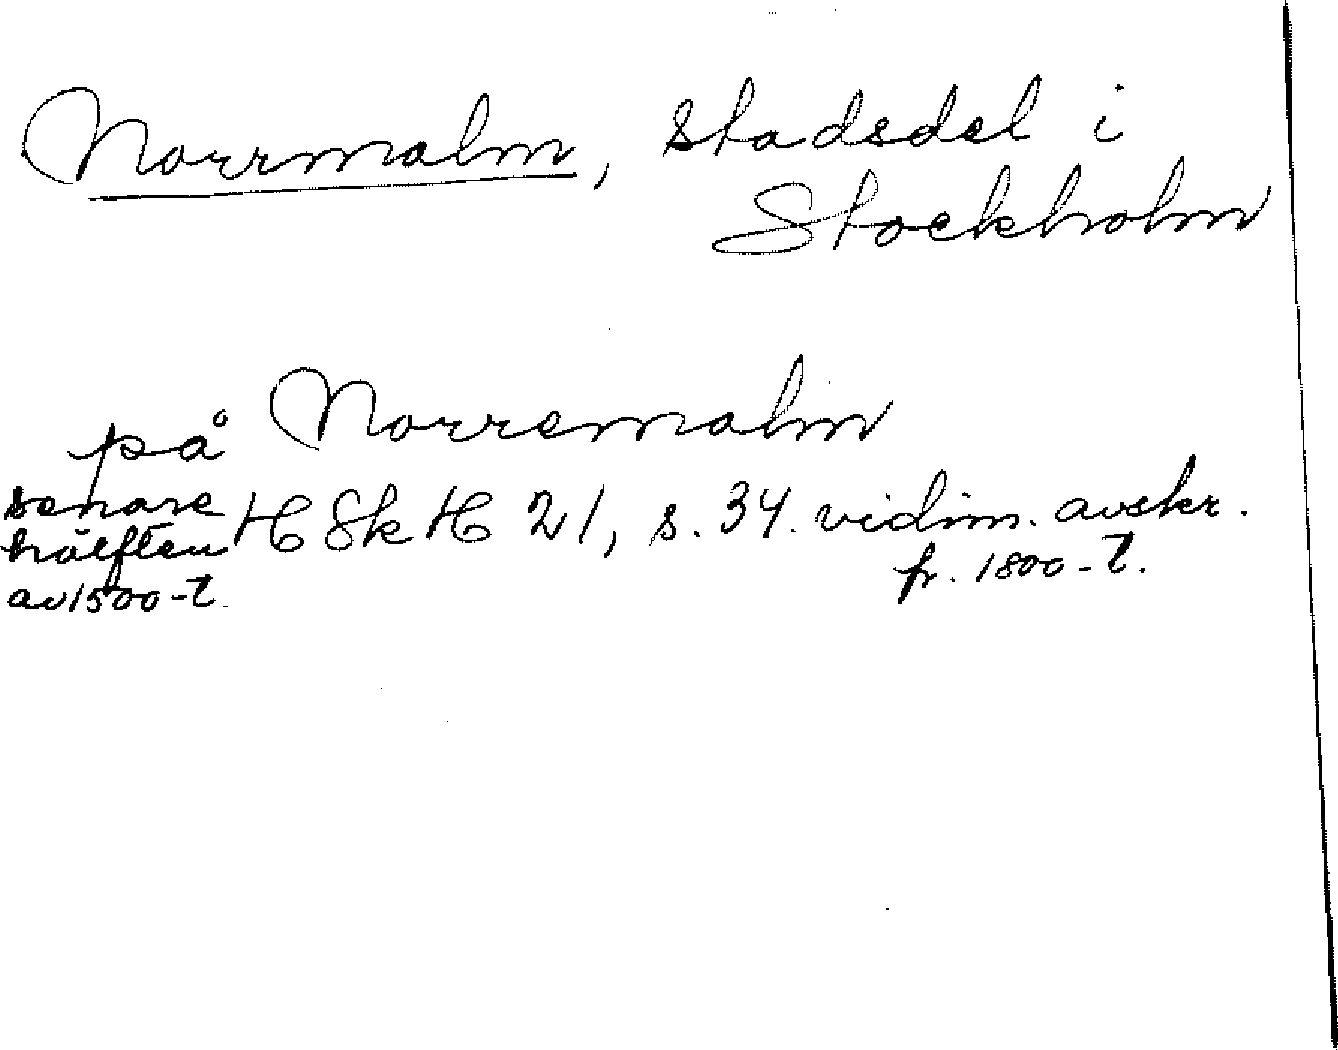 Norrmalm, stadsdel i
Stockholm
på Norremalm
senare
hälften
av 1500-t.
HSkH 21, s. 34. vidim. avskr.
fr. 1800-t.